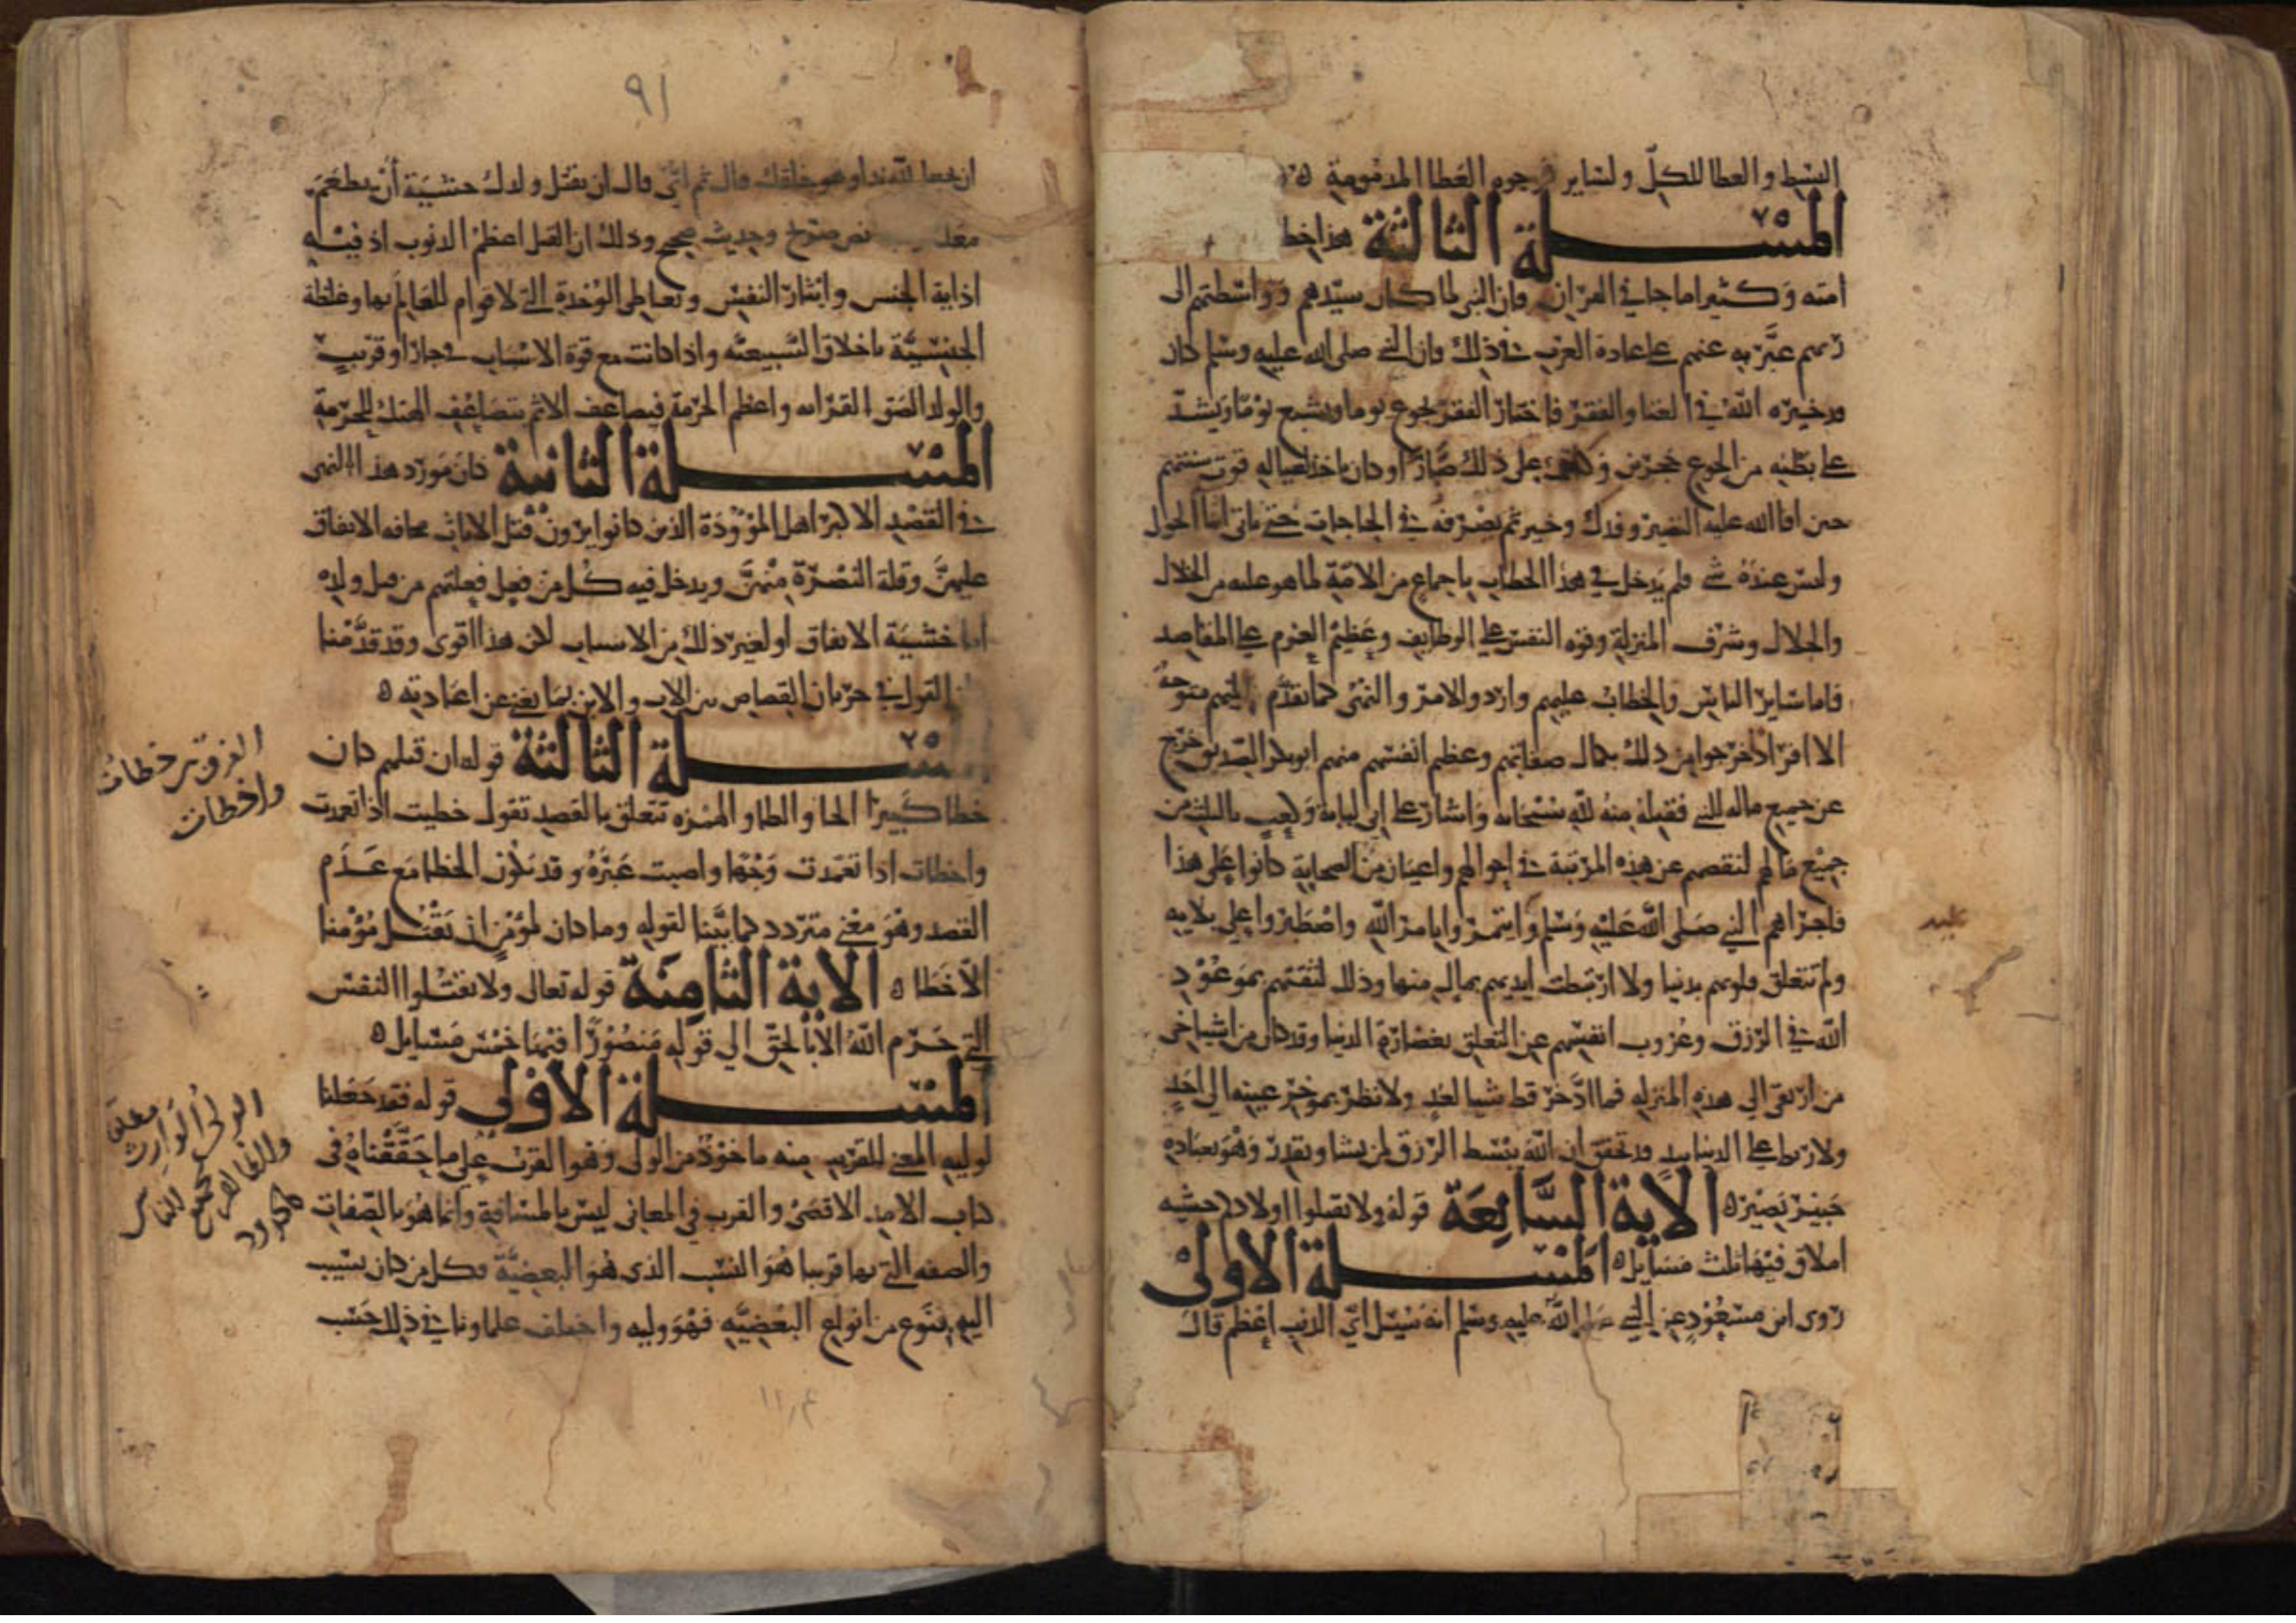 البسط والعطا للكل ولساير وجوه العطا المذمومة ه
المسلة الثالثة هذا خطا
امته وكثيرا ما جا في القران فان النبي لما كان سيدهم وواسطتهم الى
ربهم عبر به عنهم على عادة العرب في ذلك فان النبي صلى الله عليه وسلم كان
قد خيره الله في الغنا والفقر فاختار الفقر يجوع يوما ويشبع يوما ويشد
على بطنه من الجوع حجرين وكان على ذلك صبارا وكان ياخذ لعياله قوت سنتهم
حين افا الله عليه النضير وفدك وخيبر ثم يصرفه في الحاجات حتى ياتي اثنا الحول
وليس عنده شي فلم يدخل في هذا الخطاب باجماع من الامة لما هو عليه من الخلال
والجلال وشرف المنزلة وقوة النفس على الوظايف وعظيم العزم على المقاصد
فاما ساير الناس فالخطاب عليهم وارد والامر والنهي كما تقدم اليهم متوجه
الا افرادا خرجوا من ذلك بكمال صفاتهم وعظم انفسهم منهم ابو بكر الصديق خرج
عن جميع ماله للنبي فقبله منه لله سبحانه واشار على ابي لبابة وكعب بالثلث من
جميع مالهم لنقصهم عن هذه المرتبة في احوالهم واعيان من الصحابة كانوا على هذا
فاجراهم النبي صلى الله عليه وسلم وايتمروا بامر الله واصطبروا على بلايه
ولم تتعلق قلوبهم بدنيا ولا ارتبطت ايديهم بمال منها وذلك لثقتهم بموعود
الله في الرزق وعزوب انفسهم عن التعلق بغضارة الدنيا وقد كان من اشياخي
من ارتقى الى هذه المنزلة فما ادخر قط شيا لغد ولا نظر بموخر عينه الى احد
ولا ربط على الدنيا بيد قد تحقق ان الله يبسط الرزق لمن يشا ويقدر وهو بعباده
خبير بصير ه الاية السابعة قوله ولا تقتلوا اولادكم خشية
املاق فيها ثلث مسايل ه المسلة الاولى
روى ابن مسعود عن النبي صلى الله عليه وسلم انه سيل اي الذنب اعظم قال
٩١
ان تجعل لله ندا وهو خلقك قال ثم اي قال ان تقتل ولدك خشية ان يطعم
معك نص صريح وحديث صحيح وذلك ان القتل اعظم الذنوب اذ فيه
اذاية الجنس وايثار النفس وتعاطي الوحدة التي لا قوام للعالم بها وغلظة
الجنسية باخلاق السبعية واذا كانت مع قوة الاسباب في جار او قريب
والولد الصق القرابة واعظم الحرمة فيضاعف الاثم بتضاعف الهتك للحرمة
المسلة الثانية كان مورد هذا النهي
في القصد الاكبر اهل الموودة الذين كانوا يرون قتل الاناث مخافة الانفاق
عليهن وقلة النصرة منهن ويدخل فيه كل من فعل فعلتهم من قتل ولده
اما خشية الانفاق او لغير ذلك من الاسباب لكن هذا اقوى وقد قدمنا
القول في جريان القصاص بين الاب والابن بما يغني عن اعادته ه
المسلة الثالثة قوله ان قتلهم كان
خطا كبيرا الخا والطا والهمزة تتعلق بالقصد تقول خطيت اذا تعمدت
واخطات اذا تعمدت وجها واصبت غيره وقد يكون الخطا مع عدم
القصد وهو معنى متردد كما بينا لقوله وما كان لمؤمن ان يقتل مؤمنا
الا خطا ه الاية الثامنة قوله تعالى ولا تقتلوا النفس
التي حرم الله الا بالحق الى قوله منصورا فيها خمس مسايل ه
المسلة الاولى قوله فقد جعلنا
لوليه المعنى للقريب منه ماخوذ من الولي وهو القرب على ما حققناه في
كتاب الامد الاقصى والقرب في المعاني ليس بالمسافة وانما هو بالصفات
والصفة التي بها قريبا هو النسب الذي هو البعضية فكل من كان ينسب
اليه بنوع من انواع البعضية فهو وليه واختلف علماونا في ذلك حسب
الفرق بين خطات
واخطات
الولي الوارث